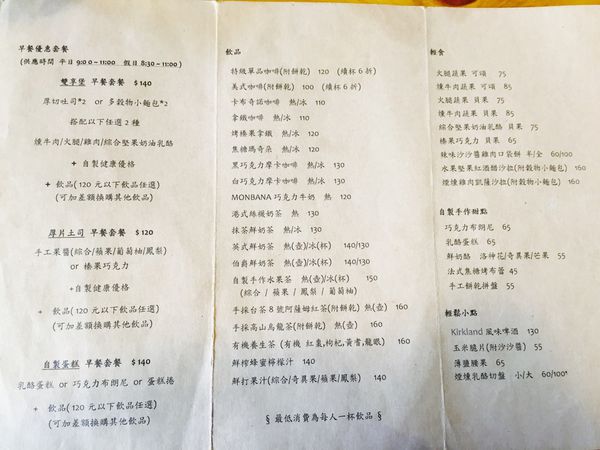 早餐優惠套餐
(供應時間 平日 9:00~11:00 假日 8:30~11:00)
雙享堡 早餐套餐 $140
厚切吐司*2 or 多穀物小麵包*2
搭配以下任選 2 種
燻牛肉/火腿/雞肉/綜合堅果奶油乳酪
+ 自製健康優格
+ 飲品(120 元以下飲品任選)
(可加差額換購其他飲品)
厚片土司 早餐套餐 $120
手工果醬(綜合/蘋果/葡萄柚/鳳梨)
or 榛果巧克力
+自製健康優格
+ 飲品(120 元以下飲品任選)
(可加差額換購其他飲品)
自製蛋糕 早餐套餐 $140
乳酪蛋糕 or 巧克力布朗尼 or 蛋糕捲
+ 飲品(120 元以下飲品任選)
(可加差額換購其他飲品)
飲品
特級單品咖啡(附餅乾) 120 (續杯 6 折)
美式咖啡(附餅乾) 100 (續杯 6 折)
卡布奇諾咖啡 熱/冰 110
拿鐵咖啡 熱/冰 110
烤榛果拿鐵 熱/冰 120
焦糖瑪奇朵 熱/冰 120
黑巧克力摩卡咖啡 熱/冰 130
白巧克力摩卡咖啡 熱/冰 130
MONBANA 巧克力牛奶 熱 120
港式絲襪奶茶 熱 130
抹茶鮮奶茶 熱/冰 130
英式鮮奶茶 熱(壺)/冰(杯) 140/130
伯爵鮮奶茶 熱(壺)/冰(杯) 140/130
自製手作水果茶 熱(壺)/冰(杯) 150
(綜合 / 蘋果 / 鳳梨 / 葡萄柚)
手採台茶 8 號阿薩姆紅茶(附餅乾) 熱(壺) 160
手採高山烏龍茶(附餅乾) 熱(壺) 160
有機養生茶 (有機 紅棗,枸杞,黃耆,龍眼) 160
鮮榨蜂蜜檸檬汁 140
鮮打果汁(綜合/奇異果/蘋果/鳳梨) 140
§ 最低消費為每人一杯飲品 §
輕食
火腿蔬果 可頌 75
燻牛肉蔬果 可頌 85
火腿蔬果 貝果 75
燻牛肉蔬果 貝果 85
綜合堅果奶油乳酪 貝果 75
榛果巧克力 貝果 65
辣味沙沙醬雞肉口袋餅 半/全 60/100
水果堅果紅酒醋沙拉(附穀物小麵包) 160
煙燻雞肉凱薩沙拉(附穀物小麵包) 160
自製手作甜點
巧克力布朗尼 65
乳酪蛋糕 65
鮮奶酪 洛神花/奇異果/芒果 55
法式焦糖烤布蕾 45
手工餅乾拼盤 55
輕鬆小點
Kirkland 風味啤酒 130
玉米脆片(附沙沙醬) 55
薄鹽腰果 65
煙燻乳酪切盤 小/大 60/100*